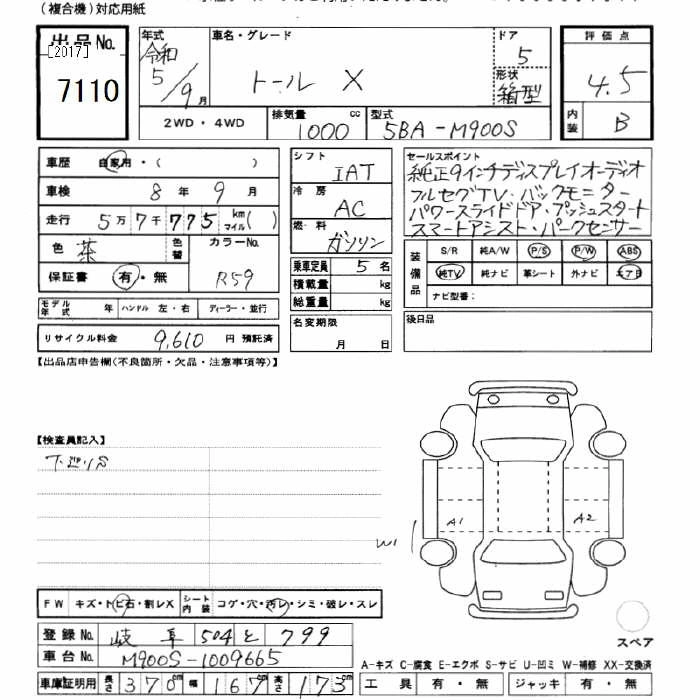 (複合機)対応用紙
出品No.
[2017]
7110
年式
令和
5/9月
車名・グレード
トール X
ドア
5
形状
箱型
評価点
4.5
内装
B
2WD・4WD
排気量
1000 cc
型式
5BA-M900S
車歴 自家用・( )
車検 8年 9月
走行 5万7千775 km マイル( )
色 茶
色替
カラーNo.
R59
保証書 有・無
モデル年式 年 ハンドル 左・右 ディーラー・並行
リサイクル料金 9,610 円 預託済
シフト
IAT
冷房
AC
燃料
ガソリン
乗車定員 5 名
積載量 kg
総重量 kg
名変期限
月 日
セールスポイント
純正9インチディスプレイオーディオ
フルセグTV・バックモニター
パワースライドドア・プッシュスタート
スマートアシスト・パークセンサー
装備品
S/R 純A/W P/S P/W ABS
純TV 純ナビ 革シート 外ナビ エアB
ナビ型番:
後日品
【出品店申告欄(不良箇所・欠品・注意事項等)】
【検査員記入】
下廻りS
A1
A2
W1
FW キズ・トビ石・割レX
シート内装 コゲ・穴・汚レ・シミ・破レ・スレ
登録No. 岐阜 504 と 799
車台No. M900S-1009665
車庫証明用 長さ 370cm 幅 167cm 高さ 173cm
スペア
A-キズ C-腐食 E-エクボ S-サビ U-凹ミ W-補修 XX-交換済
工具 有・無 ジャッキ 有・無